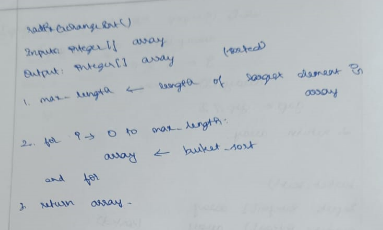 radix Exchange Sort ()
Input: Integer [] array
Output: Integer [] array (sorted)
1. max_length ← length of largest element in
array
2. for i → 0 to max_length:
array ← bucket_sort
end for
3. return array.